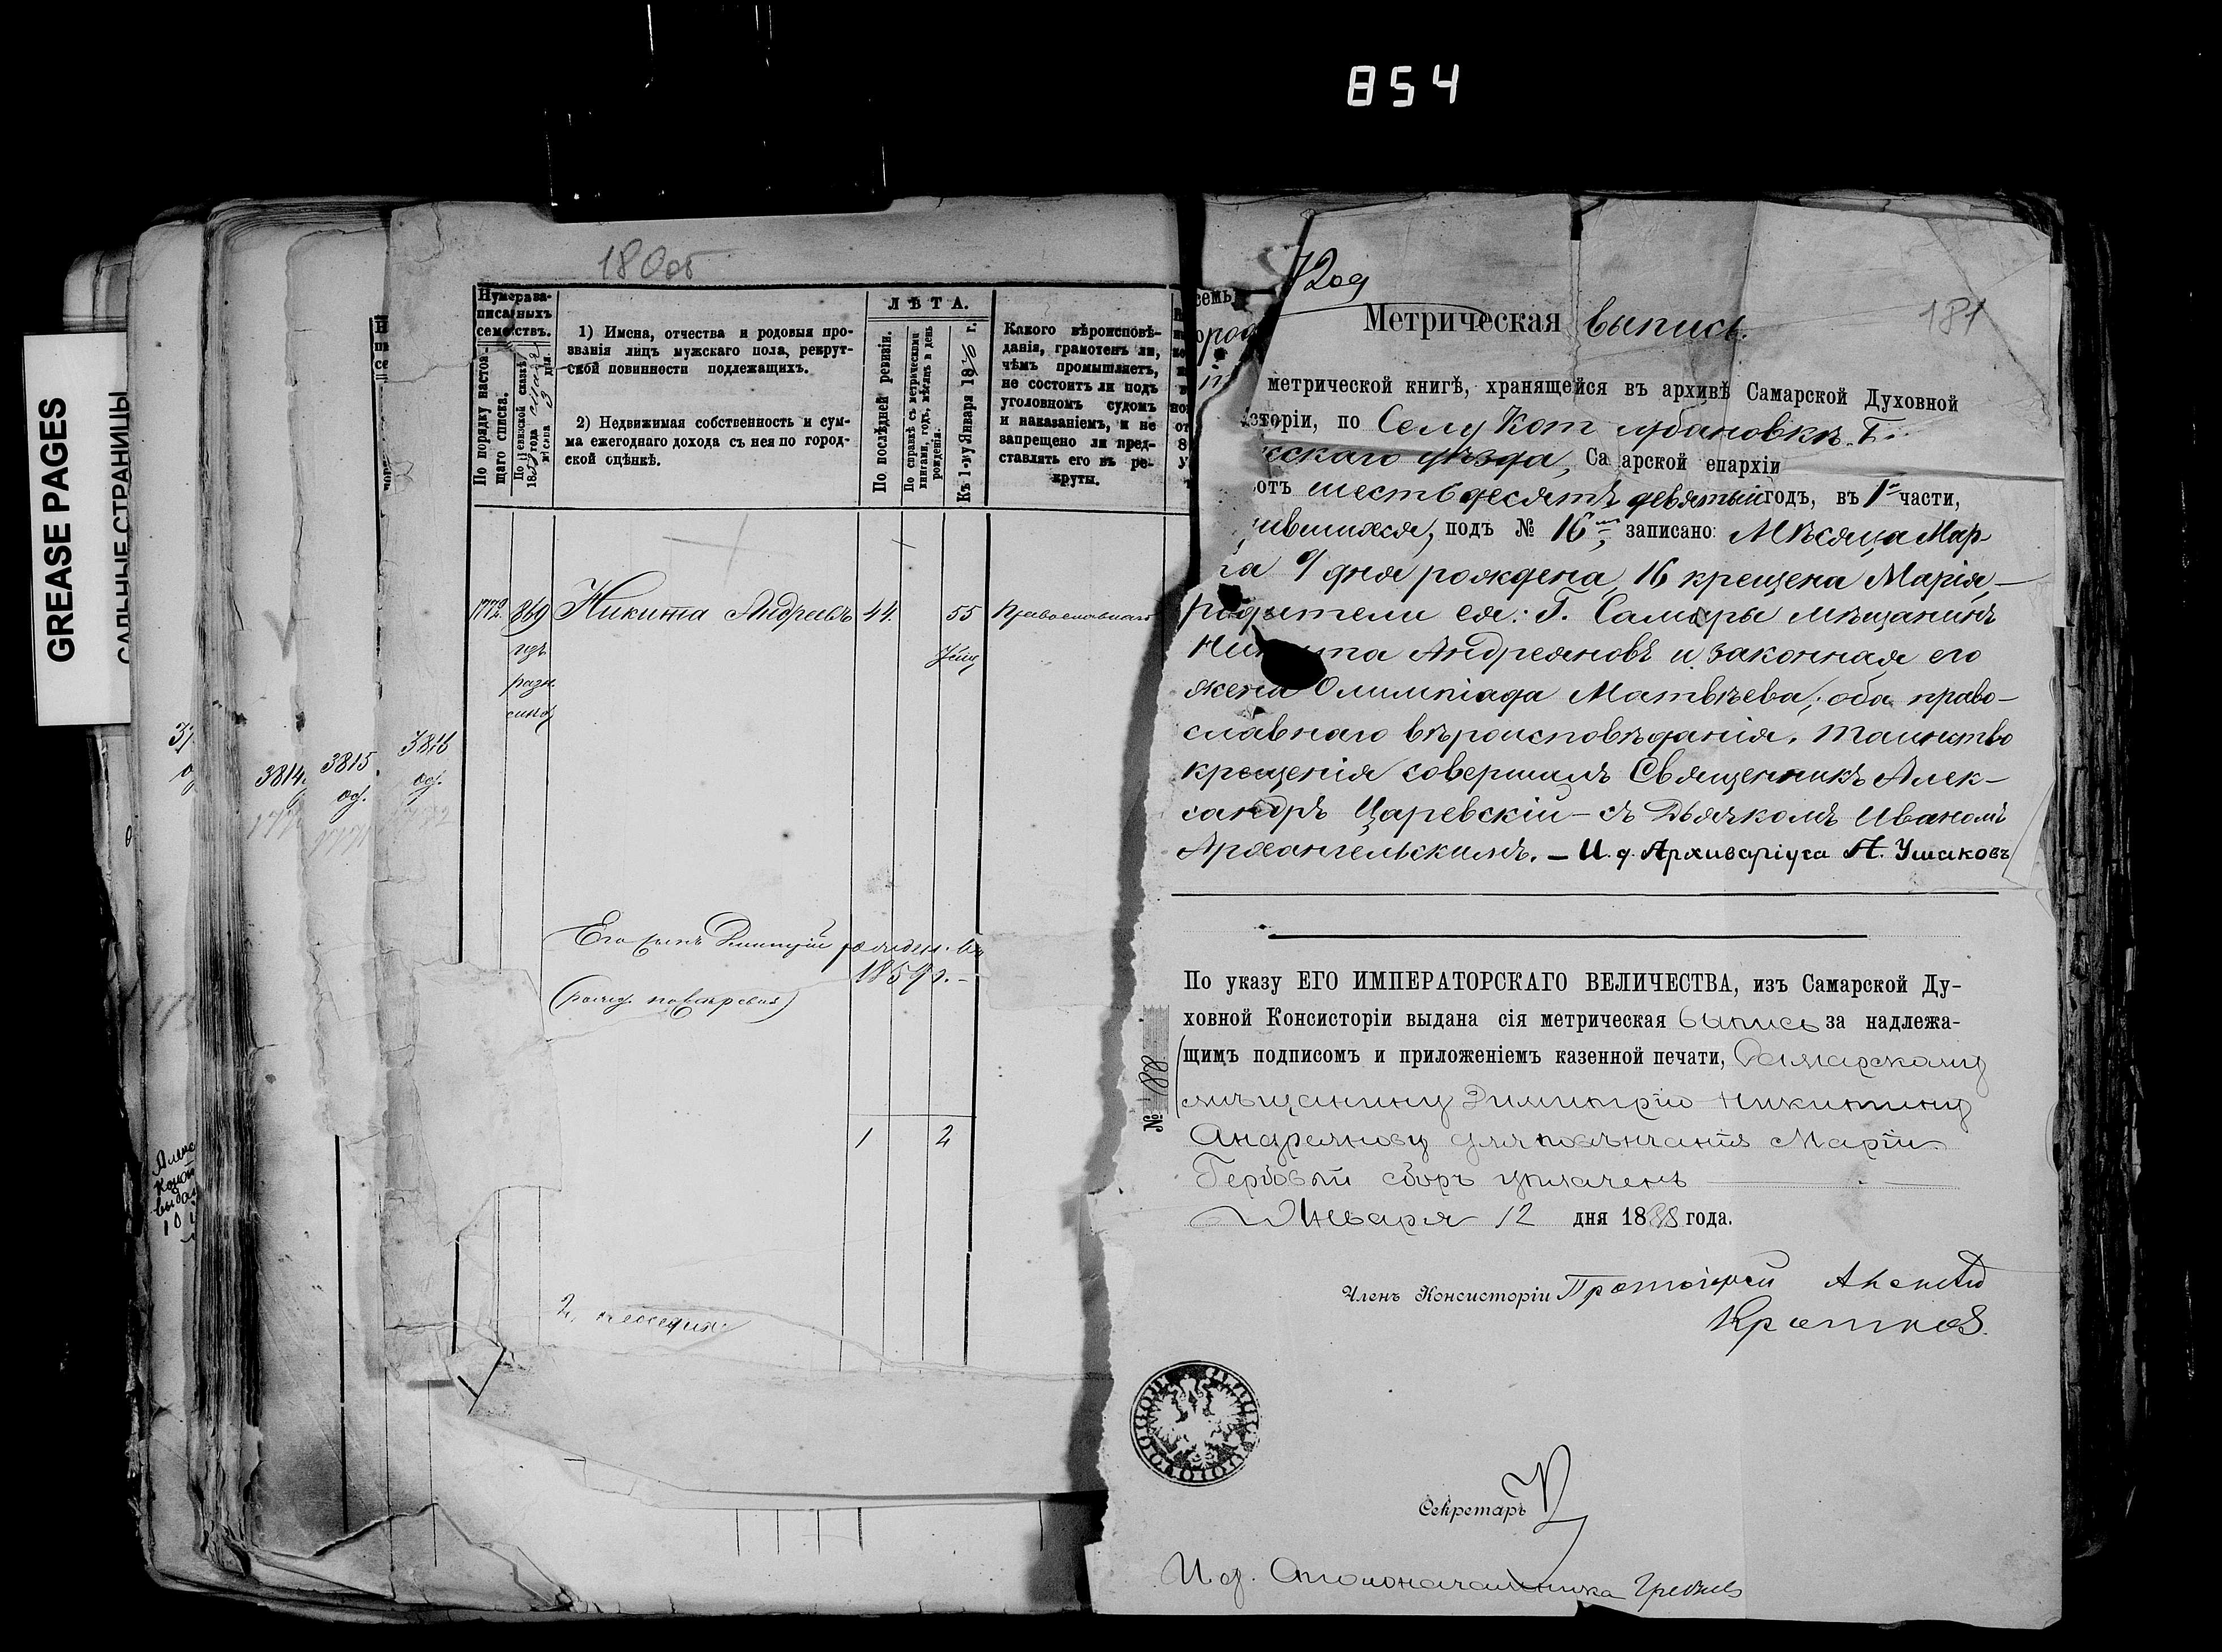 854
GREASE PAGES
САЛЬНЫЕ СТРАНИЦЫ
180об
Нумера за-
писанныхъ
семействъ.
По порядку настоя-
щаго списка.
По ревизской сказкѣ
1858 года
мѣсяца 3 дня.
1) Имена, отчества и родовыя про-
званія лицъ мужскаго пола, рекрут-
ской повинности подлежащихъ.
2) Недвижимая собственность и сум-
ма ежегоднаго дохода съ нея по город-
ской оцѣнкѣ.
ЛѢТА.
По послѣдней ревизіи.
По справкѣ съ метрическими
книгами, годъ, мѣсяцъ и день
рожденія.
Къ 1-му Января 1876 г.
Какого вѣроисповѣ-
данія, грамотенъ ли,
чѣмъ промышляетъ,
не состоитъ ли подъ
уголовномъ судомъ
и наказаніемъ, и не
запрещено ли пред-
ставлять его въ ре-
круты.
1772. 869 Никита Андреевъ 44. 55 Православнаго
изъ
разн.
3814.
3815.
об.
3816
об.
Его сынъ Димитрій рожден. въ
1859 г. -
1 2
семь
181
Метрическая выпись.
метрической книгѣ, хранящейся въ архивѣ Самарской Духовной
сторіи, по Селу Кот
скаго уѣзда, Са арской епархіи
отъ шестьдесятъ девятый годъ, въ 1й части,
ившихся, под№ 16м, записано: Мѣсяца Мар-
та 9 дня рождена, 16 крещена Марія, —
родители ея: Г. Самары мѣщанинъ
Никита Андреяновъ и законная его
жена Олимпіада Матвѣева, оба право-
славнаго вѣроисповѣданія. Таинство
крещенія совершилъ Священникъ Алек-
сандръ Царевскій — съ Дьячкомъ Иваномъ
Архангельскимъ. — И. д. Архиваріуса А. Ушаковъ
По указу ЕГО ИМПЕРАТОРСКАГО ВЕЛИЧЕСТВА, изъ Самарской Ду-
ховной Консисторіи выдана сія метрическая выпись за надлежа-
щимъ подписомъ и приложеніемъ казенной печати, Самарскому
мѣщанину Димитрію Никитину
Андреянову для повѣнчанія Маріи
Гербовый сборъ уплаченъ
Января 12 дня 1888 года.
№ 188
Членъ Консисторіи Протоіерей
Секретарь
И. д. Столоначальника